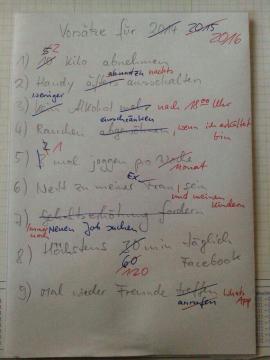 Vorsätze für 2014 2015 2016
1) 10 5 2 kilo abnehmen
2) Handy öfter abundzu nachts ausschalten
weniger
3) kein Alkohol mehr nach 11.00 Uhr
einschränken
4) Rauchen abgewöhnen wenn ich erkältet bin
5) 3 2 1 mal joggen pro Woche Monat
6) Nett zu meiner Ex-Frau sein und meinen Kindern
7) Gehaltserhöhung fordern
immer noch Neuen Job suchen
8) Höchstens 30 min täglich
60 120 Facebook
9) mal wieder Freunde treffen
anrufen WhatsApp